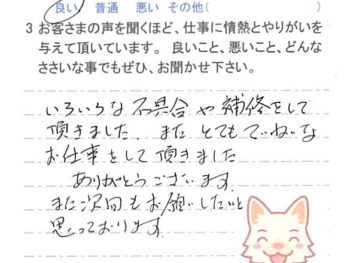 良い 普通 悪い その他(
3 お客さまの声を聞くほど、仕事に情熱とやりがいを
与えて頂いています。 良いこと、悪いこと、どんな
ささいな事でもぜひ、お聞かせ下さい。
いろいろな不具合や補修をして
頂きました。また とても ていねいな
お仕事をして頂きました
ありがとうございます。
また次回もお願いしたいと
思っております。